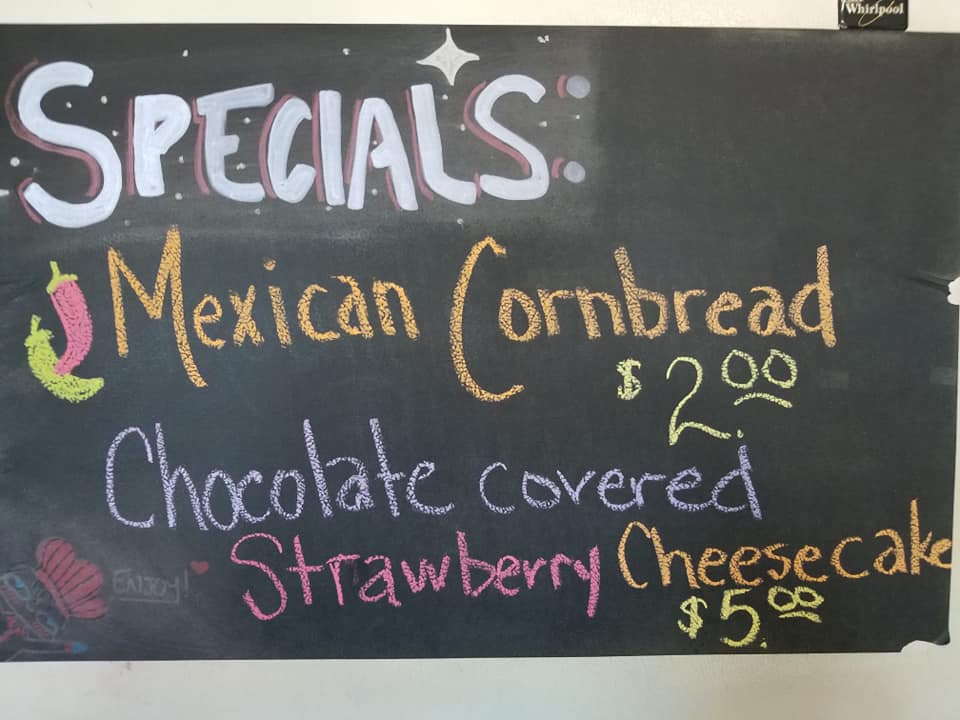 Whirlpool
SPECIALS:
Mexican Cornbread
$2.00
Chocolate covered
Strawberry Cheesecake
$5.00
ENJOY!